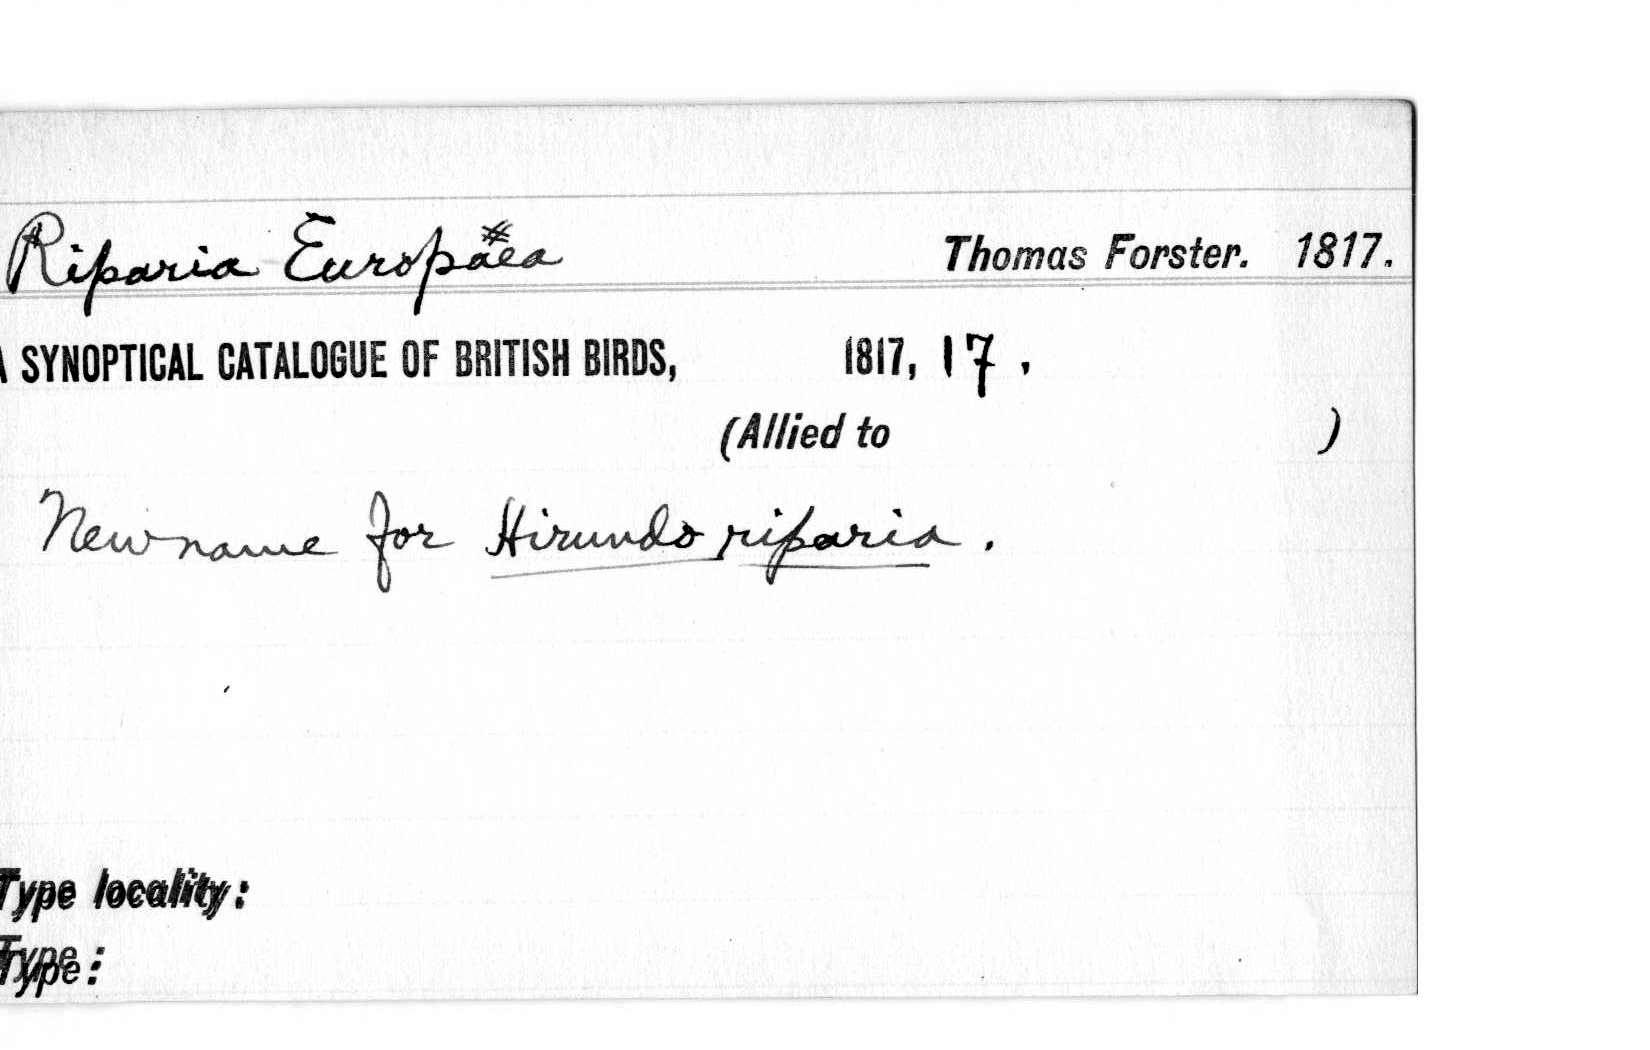 Riparia Europæa Thomas Forster. 1817.
A SYNOPTICAL CATALOGUE OF BRITISH BIRDS, 1817, 17.
(Allied to )
New name for Hirundo riparia.
Type locality:
Type: